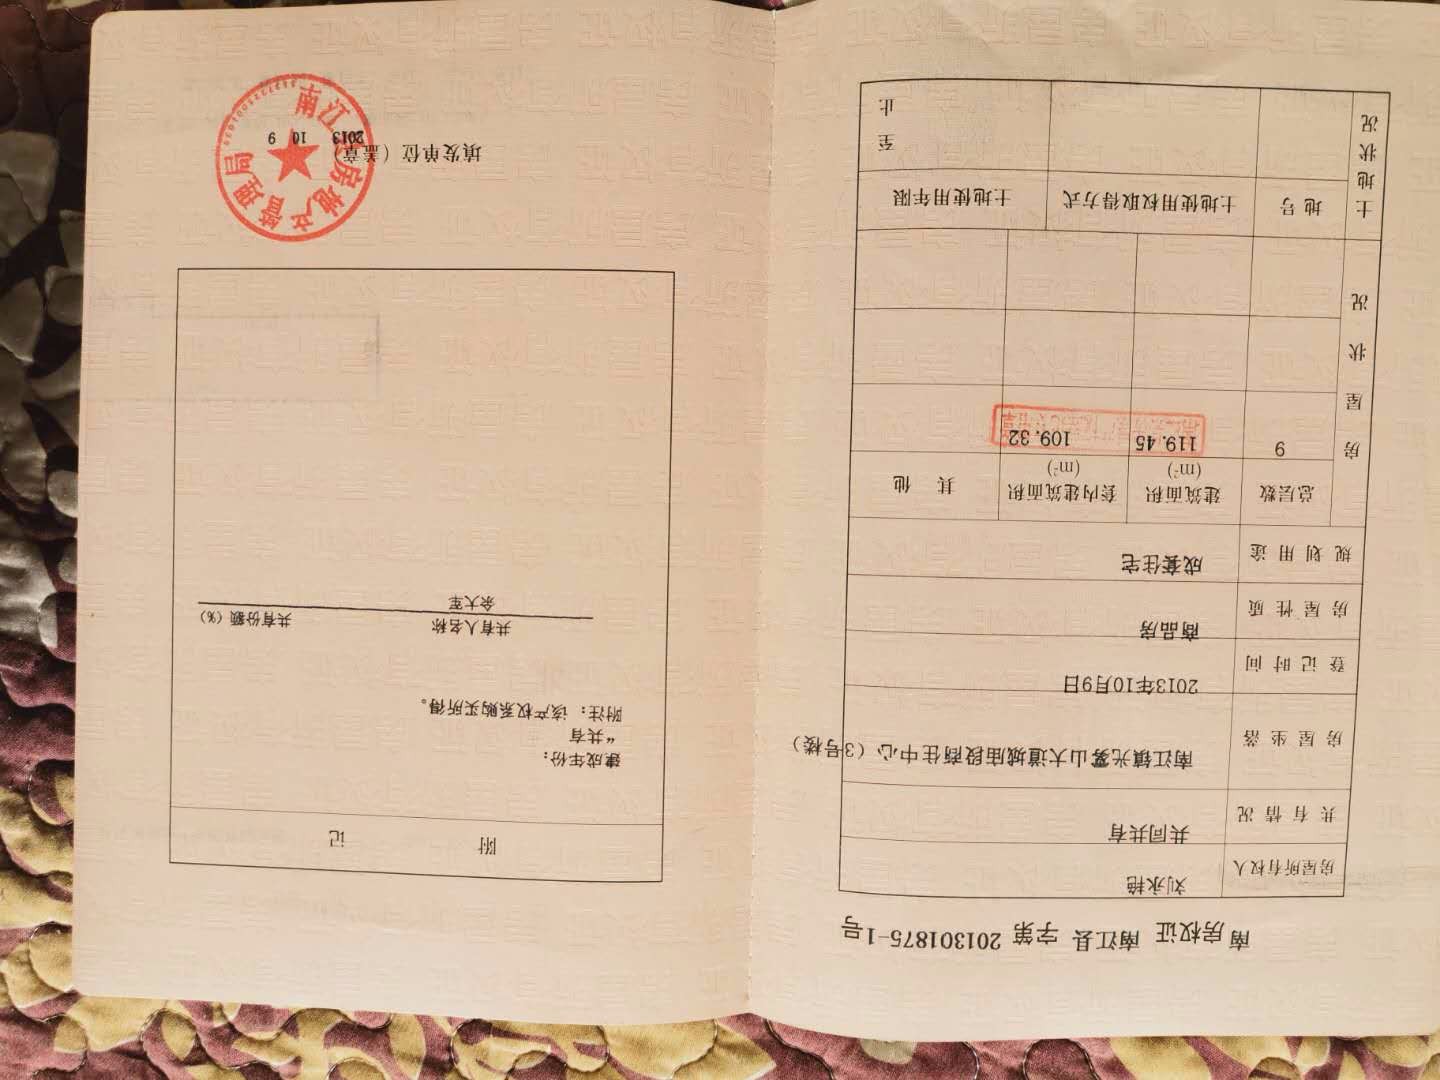 南房权证 南江县 字第 201301875-1号
房屋所有权人 刘永艳
共有情况 共同共有
房屋坐落 南江镇光雾山大道城庙段商住中心（3号楼）
登记时间 2013年10月9日
房屋性质 商品房
规划用途 成套住宅
房屋状况
总层数 建筑面积（m²） 套内建筑面积（m²） 其他
9 119.45 109.32
土地状况
地号 土地使用权取得方式 土地使用年限
至 止
附 记
建成年份：
“共有
附注：该产权系购买所得。
共有人名称 共有份额（%）
余大军
填发单位（盖章）
2013 10 9
南江县房地产管理局